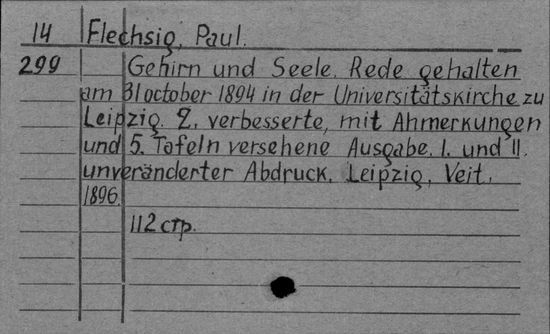 14 Flechsig, Paul.
299 Gehirn und Seele. Rede gehalten
am 31 october 1894 in der Universitätskirche zu
Leipzig. 2. verbesserte, mit Ahmerkungen
und 5. Tafeln versehene Ausgabe. I. und II.
unveränderter Abdruck. Leipzig, Veit.
1896.
112 стр.